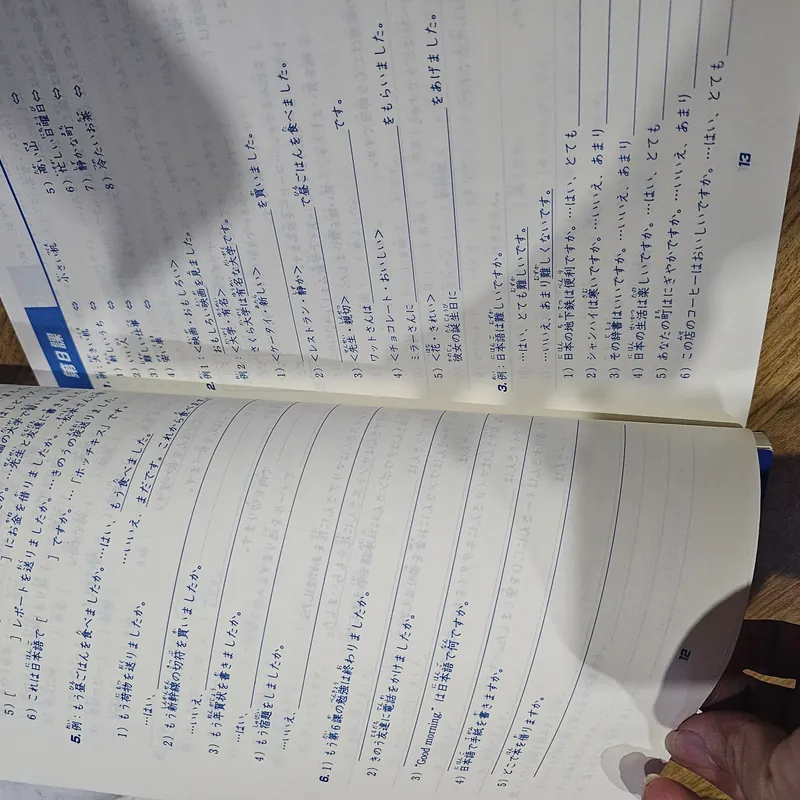 5) [
] レポートを送りましたか。…きのうの
6) これは日本語で [ ] ですか。…「ホッチキス」です。
] にお金を借りましたか。
5. 例：もう昼ごはんを食べましたか。…はい、もう食べました。
…いいえ、まだです。これから食べます
1) もう荷物を送りましたか。
…はい、
2) もう新幹線の切符を買いましたか。
…いいえ、
3) もう年賀状を書きましたか。
…はい、
4) もう宿題をしましたか。
…いいえ、
6. 1) もう第6課の勉強は終わりましたか。
2) きのう友達に電話をかけましたか。
3) “Good morning.” は日本語で何ですか。
4) 日本語で手紙を書きますか。
5) どこで本を借りますか。
12
第8課
5) 高い山 ⇔
6) 忙しい日曜日 ⇔
7) 静かな町 ⇔
8) 冷たいお茶 ⇔
2. 例1 <映画・おもしろい>
おもしろい映画を見ました。
例2 <大学・有名>
さくら大学は有名な大学です。
1) <ケータイ・新しい>
を買いました。
2) <レストラン・静か>
で昼ごはんを食べました。
3) <先生・親切>
ワットさんは です。
4) <チョコレート・おいしい>
ミラーさんに をもらいました。
5) <花・きれい>
彼女の誕生日に をあげました。
3. 例：日本語は難しいですか。
…はい、とても難しいです。
…いいえ、あまり難しくないです。
1) 日本の地下鉄は便利ですか。…はい、とても
2) シャンハイは寒いですか。…いいえ、あまり
3) その辞書はいいですか。…いいえ、あまり
4) 日本の生活は楽しいですか。…はい、とても
5) あなたの町はにぎやかですか。…いいえ、あまり
6) この店のコーヒーはおいしいですか。…はい、とても
13